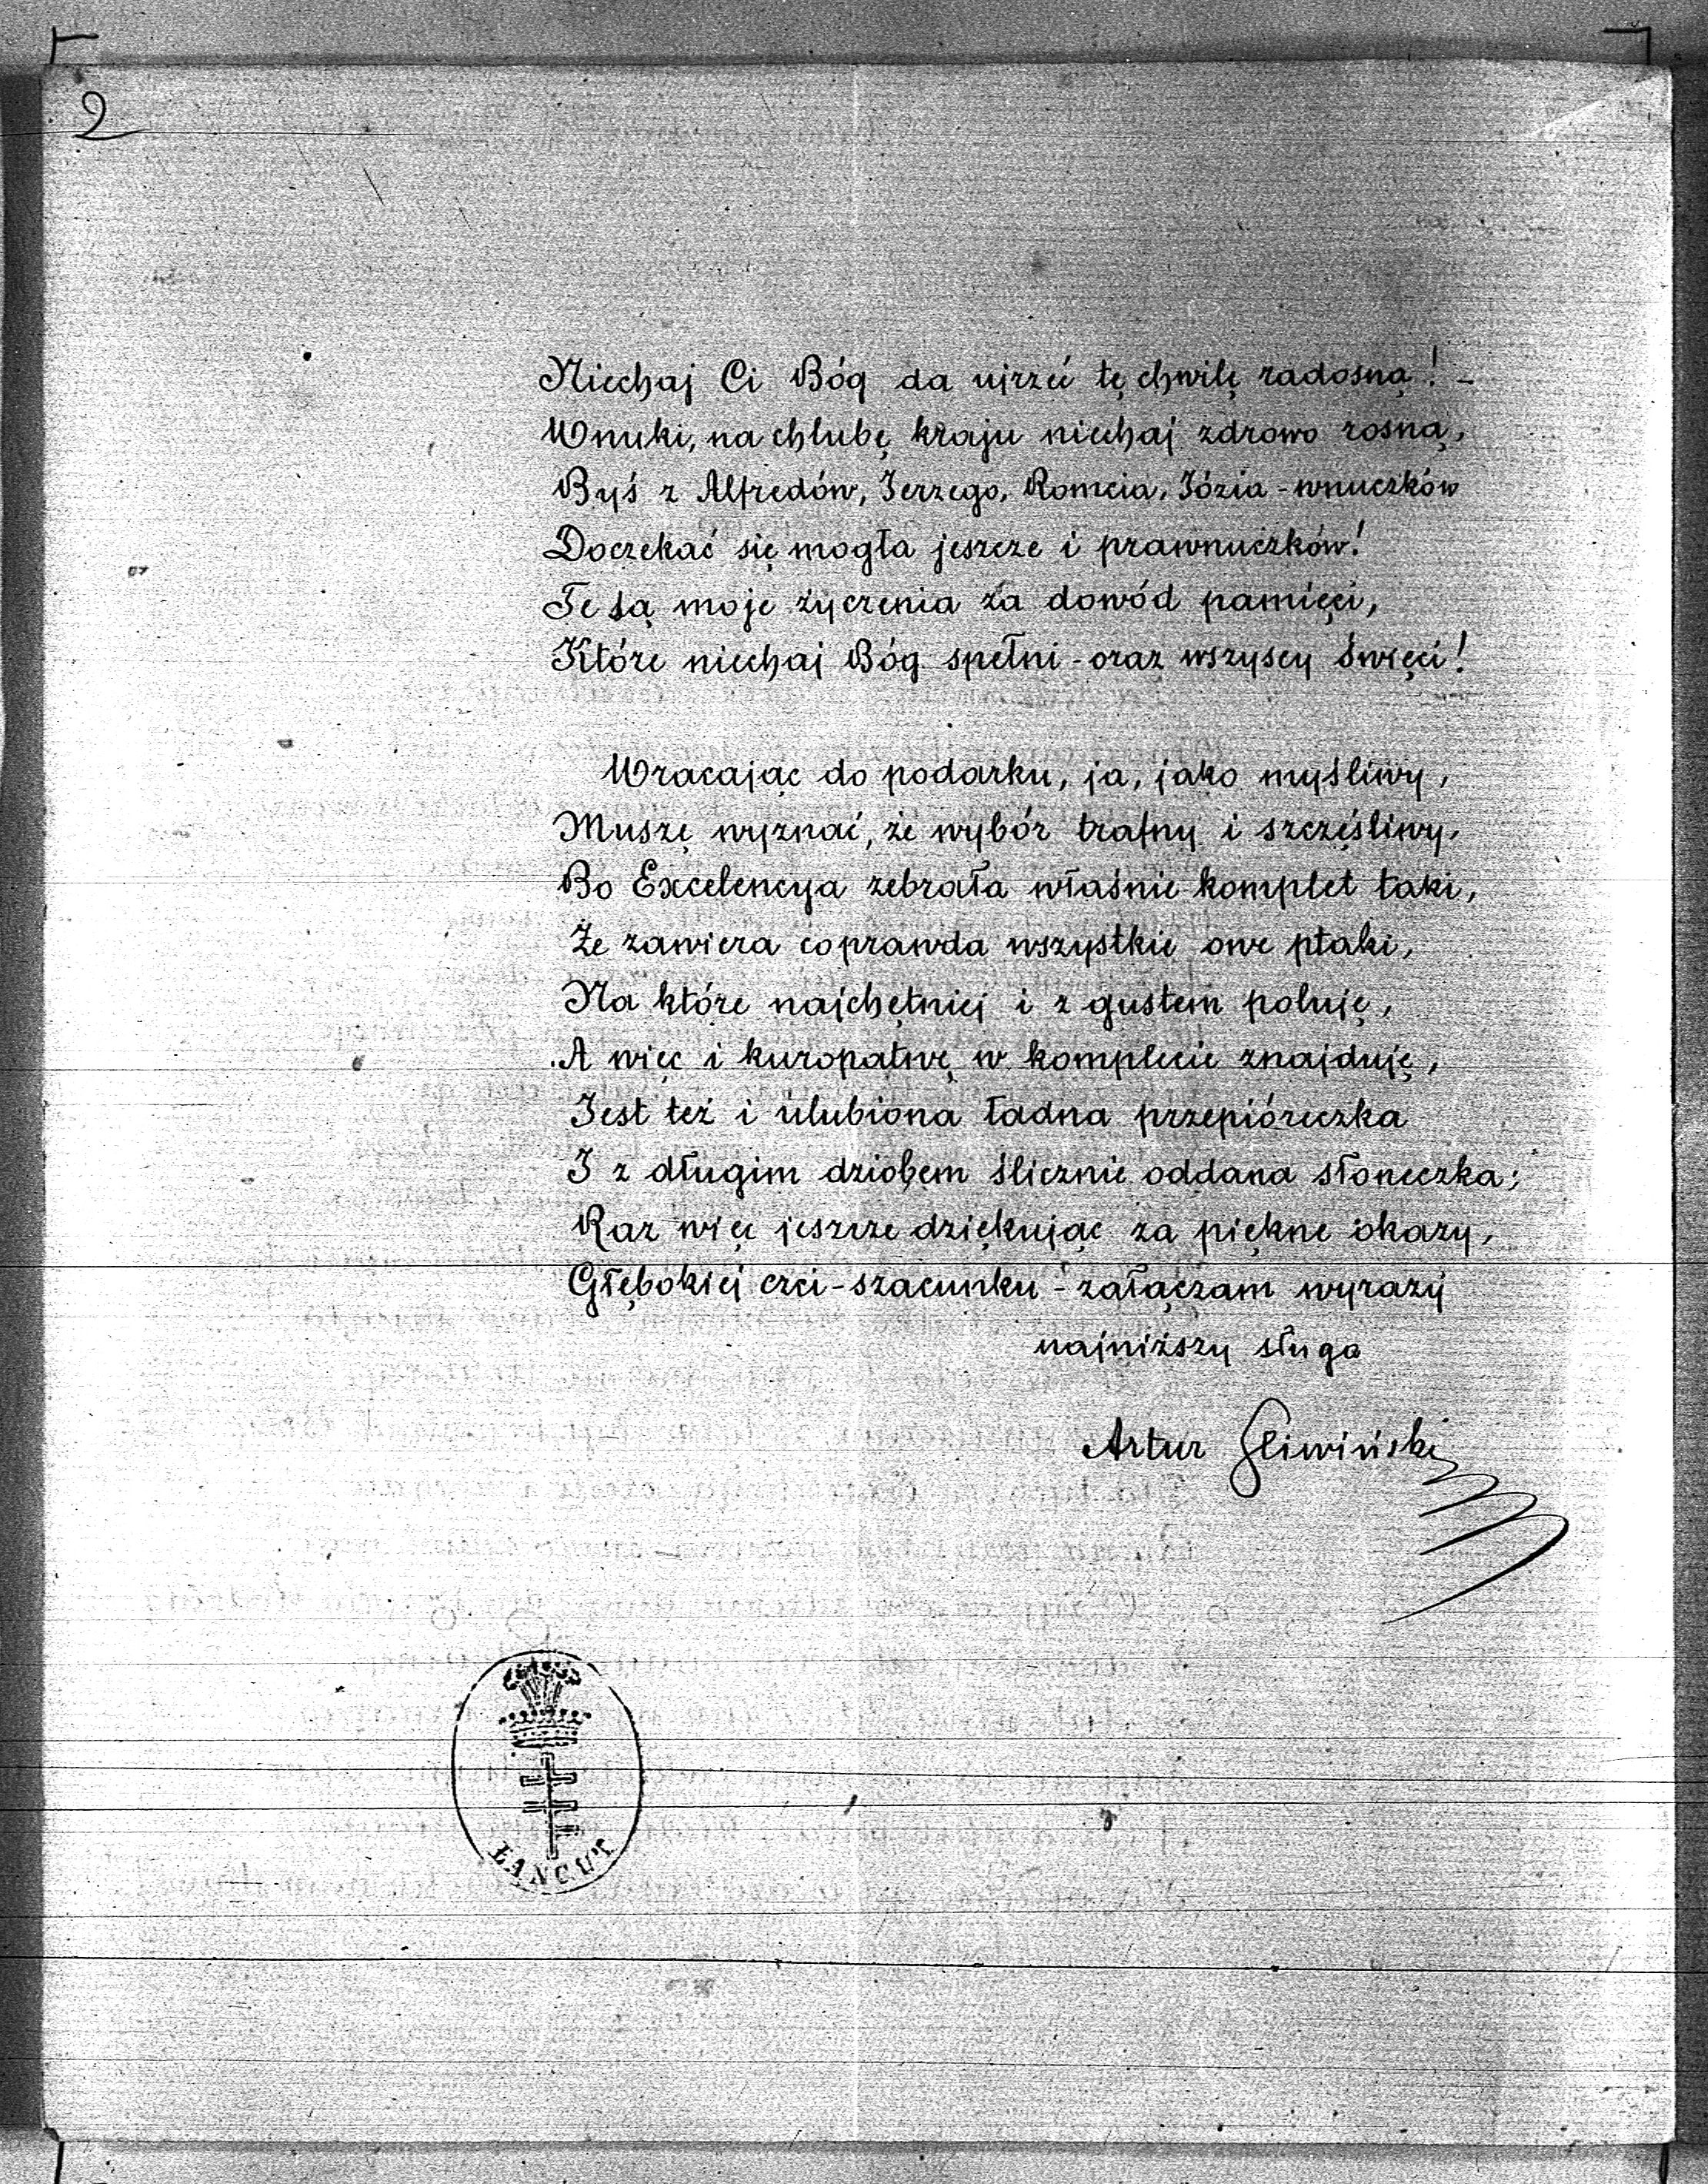 2
Niechaj Ci Bóg da ujrzeć tę chwilę radosną! -
Wnuki, na chlubę kraju niechaj zdrowo rosną,
Byś z Alfredów, Jerzego, Romcia, Józia - wnuczków
Doczekać się mogła jeszcze i prawnuczków!
Te są moje życzenia za dowód pamięci,
Które niechaj Bóg spełni - oraz wszyscy Święci!
Wracając do podarku, ja, jako myśliwy,
Muszę wyznać, że wybór trafny i szczęśliwy,
Bo Excelencya zebrała właśnie komplet taki,
Że zawiera coprawda wszystkie owe ptaki,
Na które najchętniej i z gustem poluję,
A więc i kuropatwę w komplecie znajduję,
Jest też i ulubiona ładna przepióreczka
I z długim dziobem ślicznie oddana słoneczka;
Raz więc jeszcze dziękując za piękne okazy,
Głębokiej czci - szacunku - załączam wyrazy
najniższy sługa
Artur Gliwiński
ŁAŃCUT